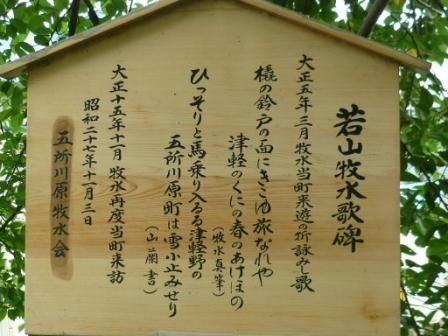 若山牧水歌碑
大正五年三月牧水当町来遊の折詠みし歌
橇の鈴戸の面にきこゆ旅なれや
津軽のくにの春のあけぼの
(牧水真筆)
ひっそりと馬乗り入るる津軽野の
五所川原町は雪小止みせり
(山蘭書)
大正十五年十一月 牧水再度当町来訪
昭和二十七年十一月三日
五所川原牧水会